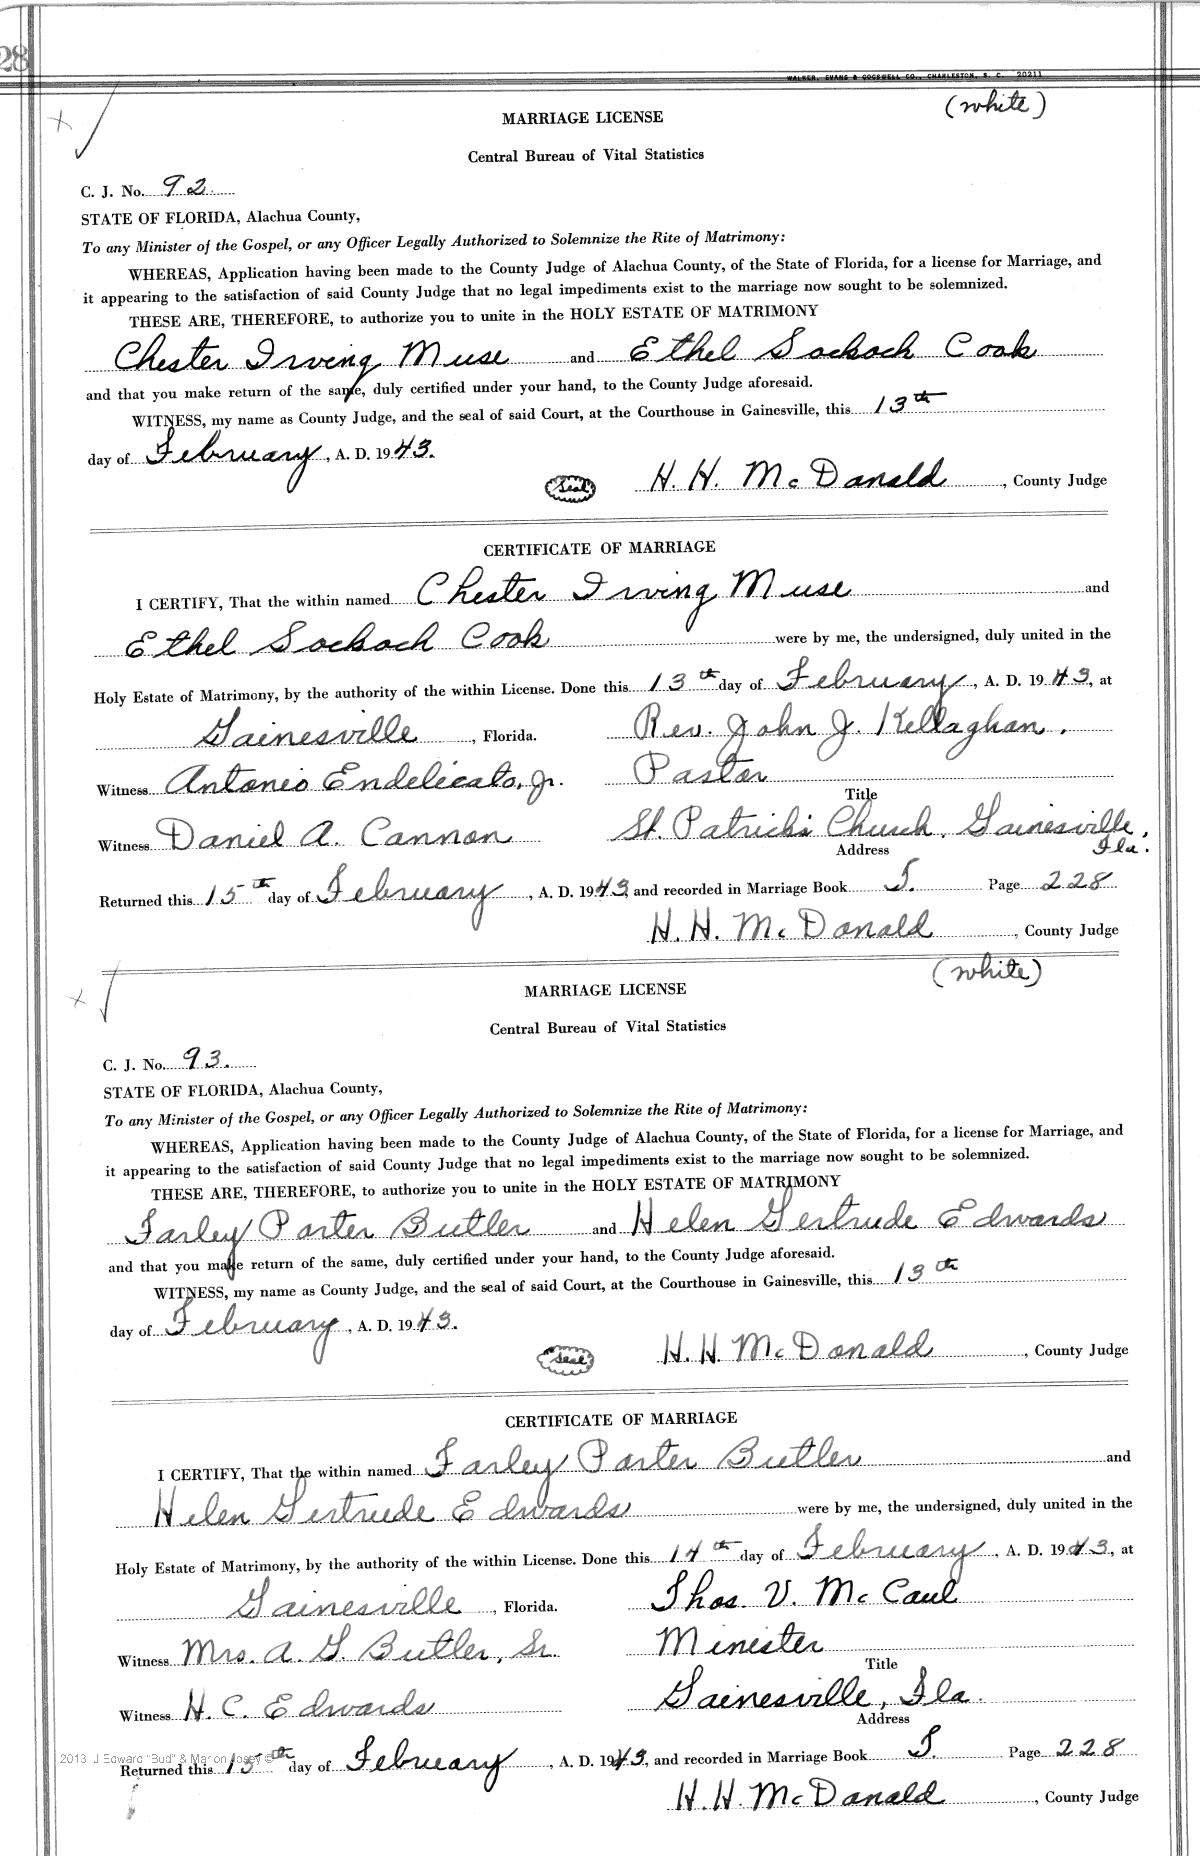 28
WALKER, EVANS & COGSWELL CO., CHARLESTON, S. C. 20211
(white)
MARRIAGE LICENSE
Central Bureau of Vital Statistics
C. J. No. 92.
STATE OF FLORIDA, Alachua County,
To any Minister of the Gospel, or any Officer Legally Authorized to Solemnize the Rite of Matrimony:
WHEREAS, Application having been made to the County Judge of Alachua County, of the State of Florida, for a license for Marriage, and
it appearing to the satisfaction of said County Judge that no legal impediments exist to the marriage now sought to be solemnized.
THESE ARE, THEREFORE, to authorize you to unite in the HOLY ESTATE OF MATRIMONY
Chester Irving Muse and Ethel Sockoch Cook
and that you make return of the same, duly certified under your hand, to the County Judge aforesaid.
WITNESS, my name as County Judge, and the seal of said Court, at the Courthouse in Gainesville, this 13th
day of February, A. D. 1943.
Seal H. H. McDonald, County Judge
CERTIFICATE OF MARRIAGE
I CERTIFY, That the within named Chester Irving Muse and
Ethel Sockoch Cook were by me, the undersigned, duly united in the
Holy Estate of Matrimony, by the authority of the within License. Done this 13th day of February, A. D. 1943, at
Gainesville, Florida. Rev. John J. Kellaghan,
Witness Antonio Endelicato, Jr. Pastor
Title
Witness Daniel A. Cannon St. Patrick's Church, Gainesville,
Address Fla.
Returned this 15th day of February, A. D. 1943, and recorded in Marriage Book T. Page 228
H. H. McDonald, County Judge
(white)
MARRIAGE LICENSE
Central Bureau of Vital Statistics
C. J. No. 93.
STATE OF FLORIDA, Alachua County,
To any Minister of the Gospel, or any Officer Legally Authorized to Solemnize the Rite of Matrimony:
WHEREAS, Application having been made to the County Judge of Alachua County, of the State of Florida, for a license for Marriage, and
it appearing to the satisfaction of said County Judge that no legal impediments exist to the marriage now sought to be solemnized.
THESE ARE, THEREFORE, to authorize you to unite in the HOLY ESTATE OF MATRIMONY
Farley Porter Butler and Helen Gertrude Edwards
and that you make return of the same, duly certified under your hand, to the County Judge aforesaid.
WITNESS, my name as County Judge, and the seal of said Court, at the Courthouse in Gainesville, this 13th
day of February, A. D. 1943.
Seal H. H. McDonald, County Judge
CERTIFICATE OF MARRIAGE
I CERTIFY, That the within named Farley Porter Butler and
Helen Gertrude Edwards were by me, the undersigned, duly united in the
Holy Estate of Matrimony, by the authority of the within License. Done this 14th day of February, A. D. 1943, at
Gainesville, Florida. Thos. V. McCaul
Witness Mrs. A. G. Butler, Sr. Minister
Title
Witness H. C. Edwards Gainesville, Fla.
Address
2013 J Edward "Bud" & Marion Josey ©
Returned this 15th day of February, A. D. 1943, and recorded in Marriage Book T. Page 228
H. H. McDonald, County Judge